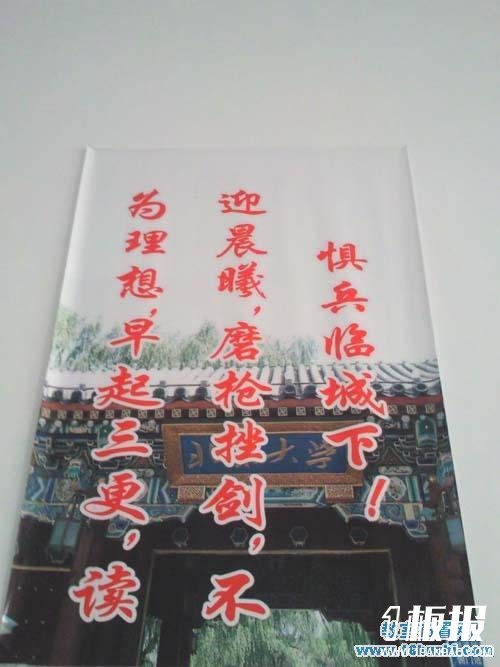 为理想,早起三更,读
迎晨曦,磨枪挫剑,不
惧兵临城下!
大学
板报